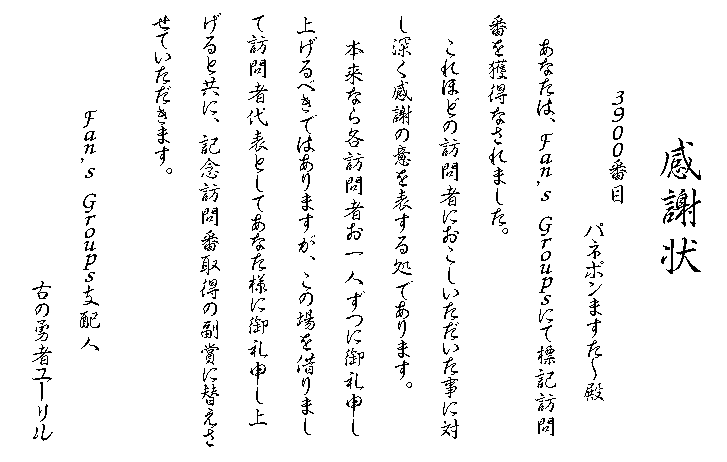 感謝状
3900番目
パネポンますたぁ殿
あなたは、Fan's Groupsにて標記訪問
番を獲得なされました。
これほどの訪問者におこしいただいた事に対
し深く感謝の意を表する処であります。
本来なら各訪問者お一人ずつに御礼申し
上げるべきではありますが、この場を借りまし
て訪問者代表としてあなた様に御礼申し上
げると共に、記念訪問番取得の副賞に替えさ
せていただきます。
Fan's Groups支配人
古の勇者ユーリル